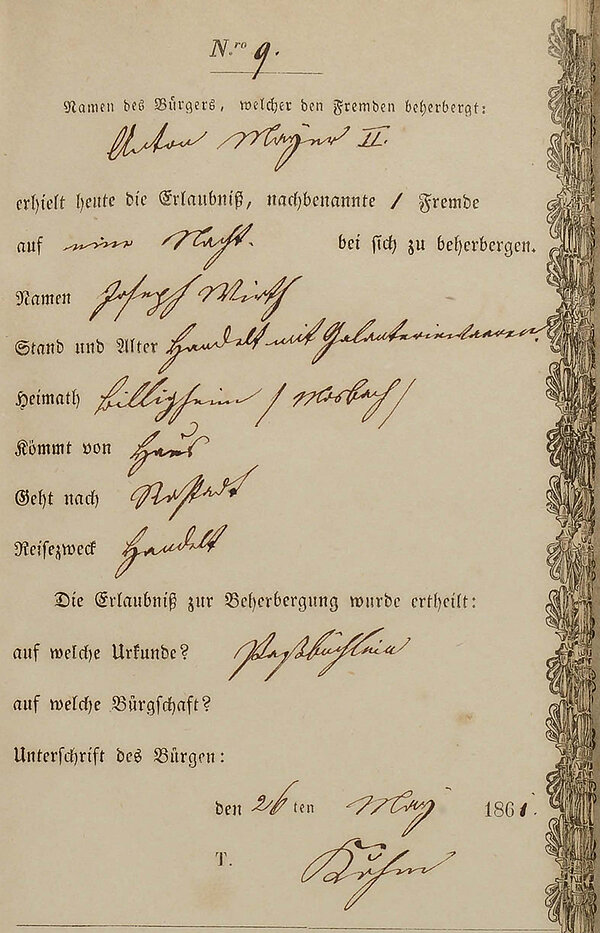 N.ro 9.
Namen des Bürgers, welcher den Fremden beherbergt:
Anton Mayer II.
erhielt heute die Erlaubniß, nachbenannte 1 Fremde
auf eine Nacht. bei sich zu beherbergen.
Namen Joseph Wirth
Stand und Alter Handelt mit Galanteriewaaren.
Heimath Billigheim / Mosbach /
Kömmt von Haus
Geht nach Rastadt
Reisezweck Handelt
Die Erlaubniß zur Beherbergung wurde ertheilt:
auf welche Urkunde? Paßbüchlein
auf welche Bürgschaft?
Unterschrift des Bürgen:
den 26 ten May 1861.
T.